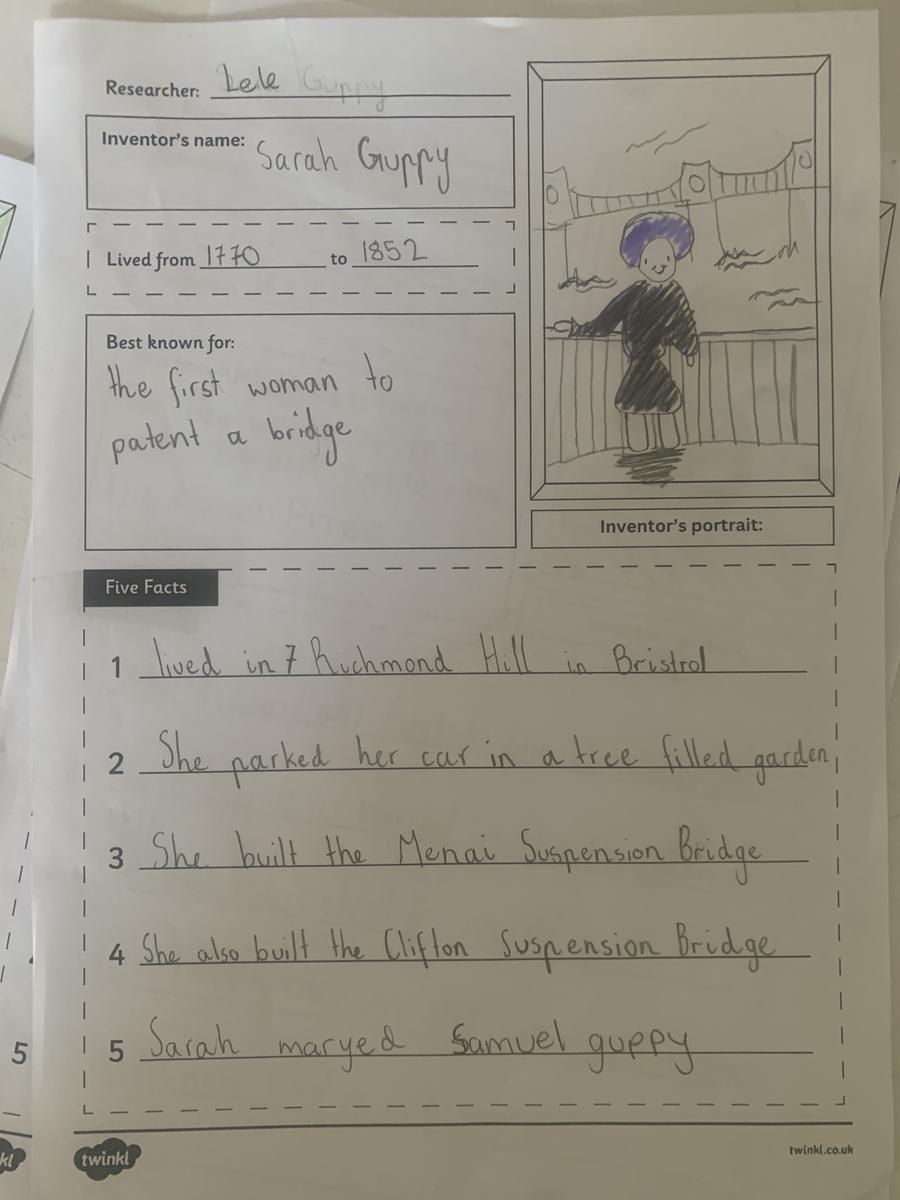 Researcher: Lele Guppy
Inventor's name: Sarah Guppy
Lived from 1770 to 1852
Best known for:
the first woman to
patent a bridge
Inventor's portrait:
Five Facts
1 lived in 7 Richmond Hill in Bristrol
2 She parked her car in a tree filled garden
3 She built the Menai Suspension Bridge
4 She also built the Clifton Suspension Bridge
5 Sarah maryed Samuel guppy
5
kl
twinkl
twinkl.co.uk